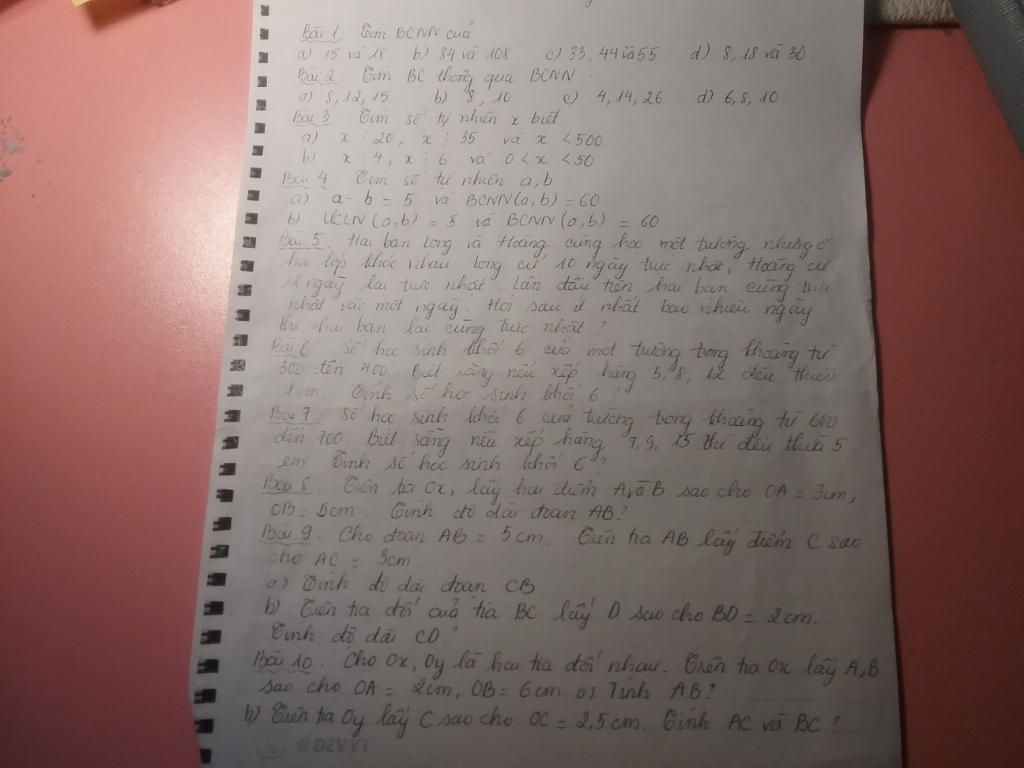 Bài 1 Tìm BCNN của
a) 15 và 18 b) 84 và 108 c) 33, 44 và 55 d) 8, 18 và 30.
Bài 2: Tìm BC thông qua BCNN.
a) 8, 12, 15 b) 8, 10 c) 4, 14, 26 d) 6, 8, 10
Bài 3 Tìm số tự nhiên x biết
a) x ⋮ 20, x ⋮ 35 và x < 500
b) x ⋮ 4, x ⋮ 6 và 0 < x < 50
Bài 4. Tìm số tự nhiên a, b.
a) a - b = 5 và BCNN(a, b) = 60
b) ƯCLN(a, b) = 5 và BCNN(a, b) = 60
Bài 5. Hai bạn Long và Hoàng cùng học một trường nhưng ở
hai lớp khác nhau Long cứ 10 ngày trực nhật, Hoàng cứ
ngày lại trực nhật. Lần đầu tiên hai bạn cùng trực
nhật vào một ngày. Hỏi sau ít nhất bao nhiêu ngày
thì hai bạn lại cùng trực nhật?
Bài 6 Số học sinh khối 6 của một trường trong khoảng từ
300 đến 400. Biết rằng nếu xếp hàng 5, 8, 12 đều thiếu
1 em. Tính số học sinh khối 6?
Bài 7. Số học sinh khối 6 của trường trong khoảng từ 600
đến 700. Biết rằng nếu xếp hàng 7, 9, 15 thì đều thừa 5
em. Tính số học sinh khối 6?
Bài 8. Trên tia Ox, lấy hai điểm A và B sao cho OA = 3cm,
OB = 5cm. Tính độ dài đoạn AB?
Bài 9. Cho đoạn AB = 5cm. Trên tia AB lấy điểm C sao
cho AC = 3cm.
a) Tính độ dài đoạn CB
b) Trên tia đối của tia BC lấy D sao cho BD = 2cm.
Tính độ dài CD?
Bài 10. Cho Ox, Oy là hai tia đối nhau. Trên tia Ox lấy A, B
sao cho OA = 2cm, OB = 6cm. a) Tính AB?
b) Trên tia Oy lấy C sao cho OC = 2,5cm. Tính AC và BC?
@DEVYT